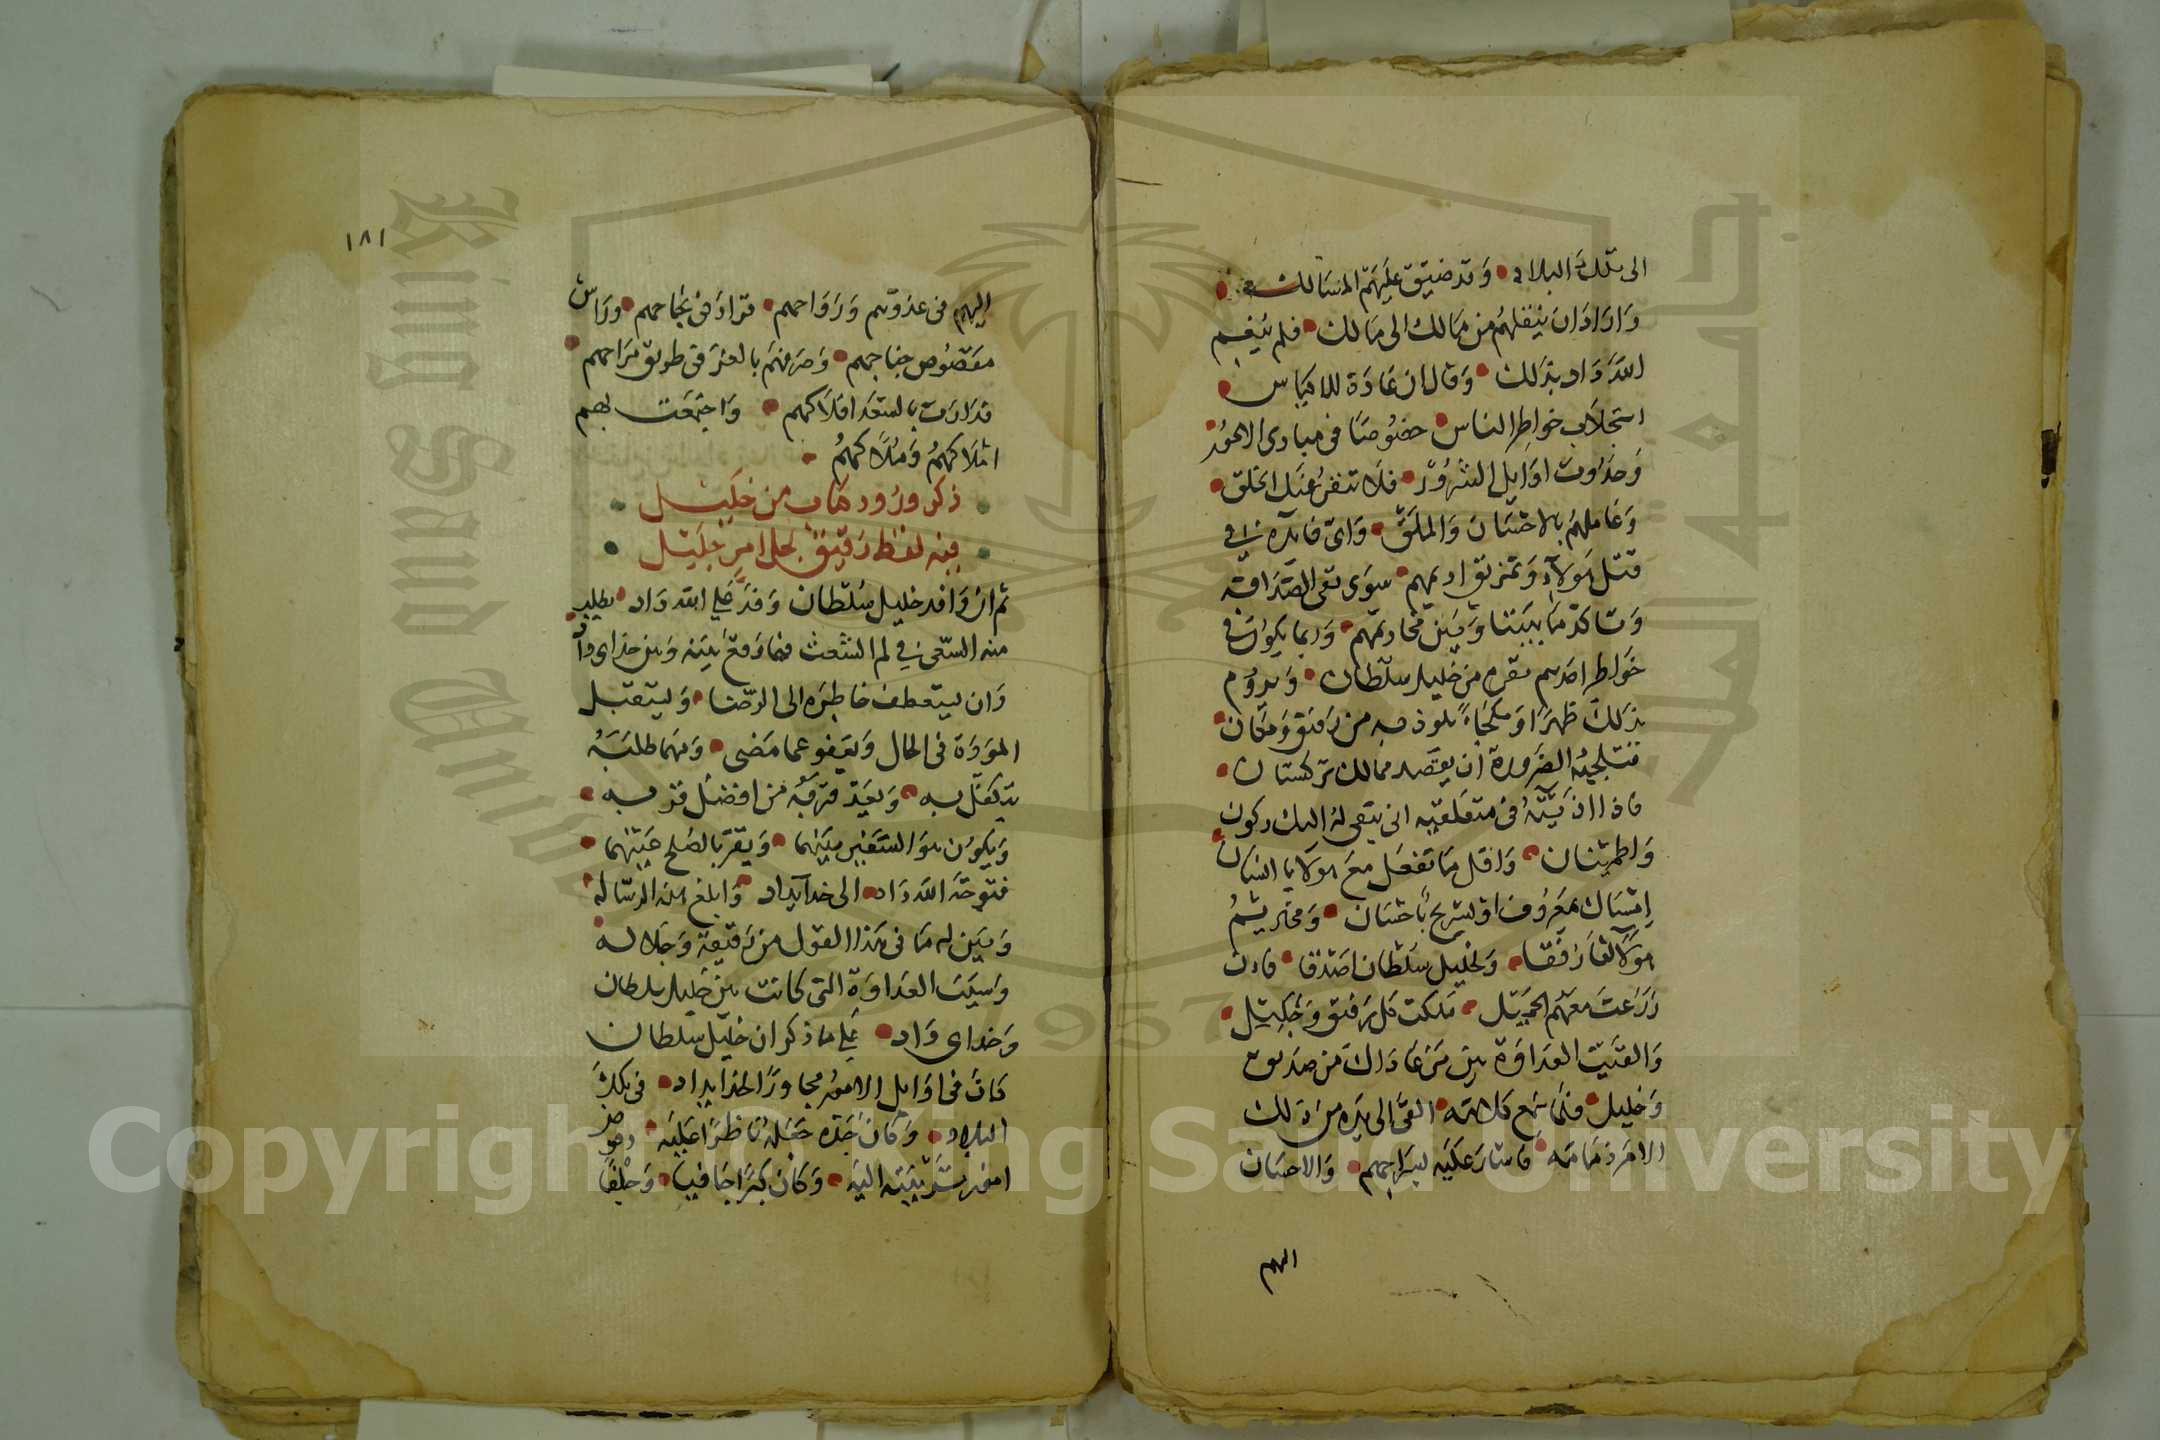 الى تلك البلاد وقد ضيق عليهم المسالك
واراد ان ينقلهم من ممالك الى مالك فلم ينعم
الله داد بذلك وقال ان عادة للاكياس
استجلاب خواطر الناس خصوصا في مبادى الامور
وحدوث اوايل الشرور فلا تنفر عنك الخلق
وعاملهم بالاحسان والملق واى فايدة لي في
قتل هولاء وتمزيق اديمهم سوى تقى الصداقة
وتاكد ما بيننا وبين مخاديمهم وربما يكون في
خواطر احدهم تقرم من خليل سلطان ويروم
بذلك ظهرا وملجاء يلوذ به من رفيق ومكان
فتلجيه الضرورة ان يقصد ممالك تركستان
فاذا اذيته في متعلقيه انى يبقى له اليك ركون
واطمئنان واقل ما تفعل مع هولا يا انسان
امساك بمعروف او تسريح باحسان ومخاديهم
هولا لنا رفقا ولخليل سلطان اصدقا فان
زرعت معهم الجميل ملكت كل رفيق وخليل
والقيت العداوة بين من عاداك من صديق
وخليل فلما سمع كلامه القى الى يده من ذلك
الامر زمامه فاشار عليه ليراجهم والاحسان
اليهم
١٨١
اليهم في غدوهم ورواحهم فزاد في نجاحهم وراش
مقصوص جناحهم وصرفهم بالعز في طريق مراحهم
فدارت بالسعد افلاكهم واجتمعت بهم
املاكهم وملاكهم
ذكر ورود كتاب من خليل
فيه لفظ رقيق لحل امر جليل
ثم ان وافد خليل سلطان وفد على الله داد يطلب
منه السعى في لم الشعث فيما وقع بينه وبين خداى داد
وان يستعطف خاطره الى الرضا وليتقبل
المودة في الحال ويعفو عما مضى ومهما طلبه
يتكفل به ويعد قربه من افضل قربه
ويكون هو السفير بينهما ويقر بالصلح عينهما
فتوجه الله داد الى خدايداد وابلغ هذه الرسالة
وبين له ما في هذا القول من رقيقة وجلاله
وسبب العداوة التي كانت بين خليل سلطان
وخداى داد على ما ذكر ان خليل سلطان
كان في اوايل الامور مجاورا لخدايداد في تلك
البلاد وكان جده جعله ناظرا عليه وفوض
امور تربيته اليه وكان كزا جافيا وجلفا
Copyright © King Saud University
King Saud University
1957